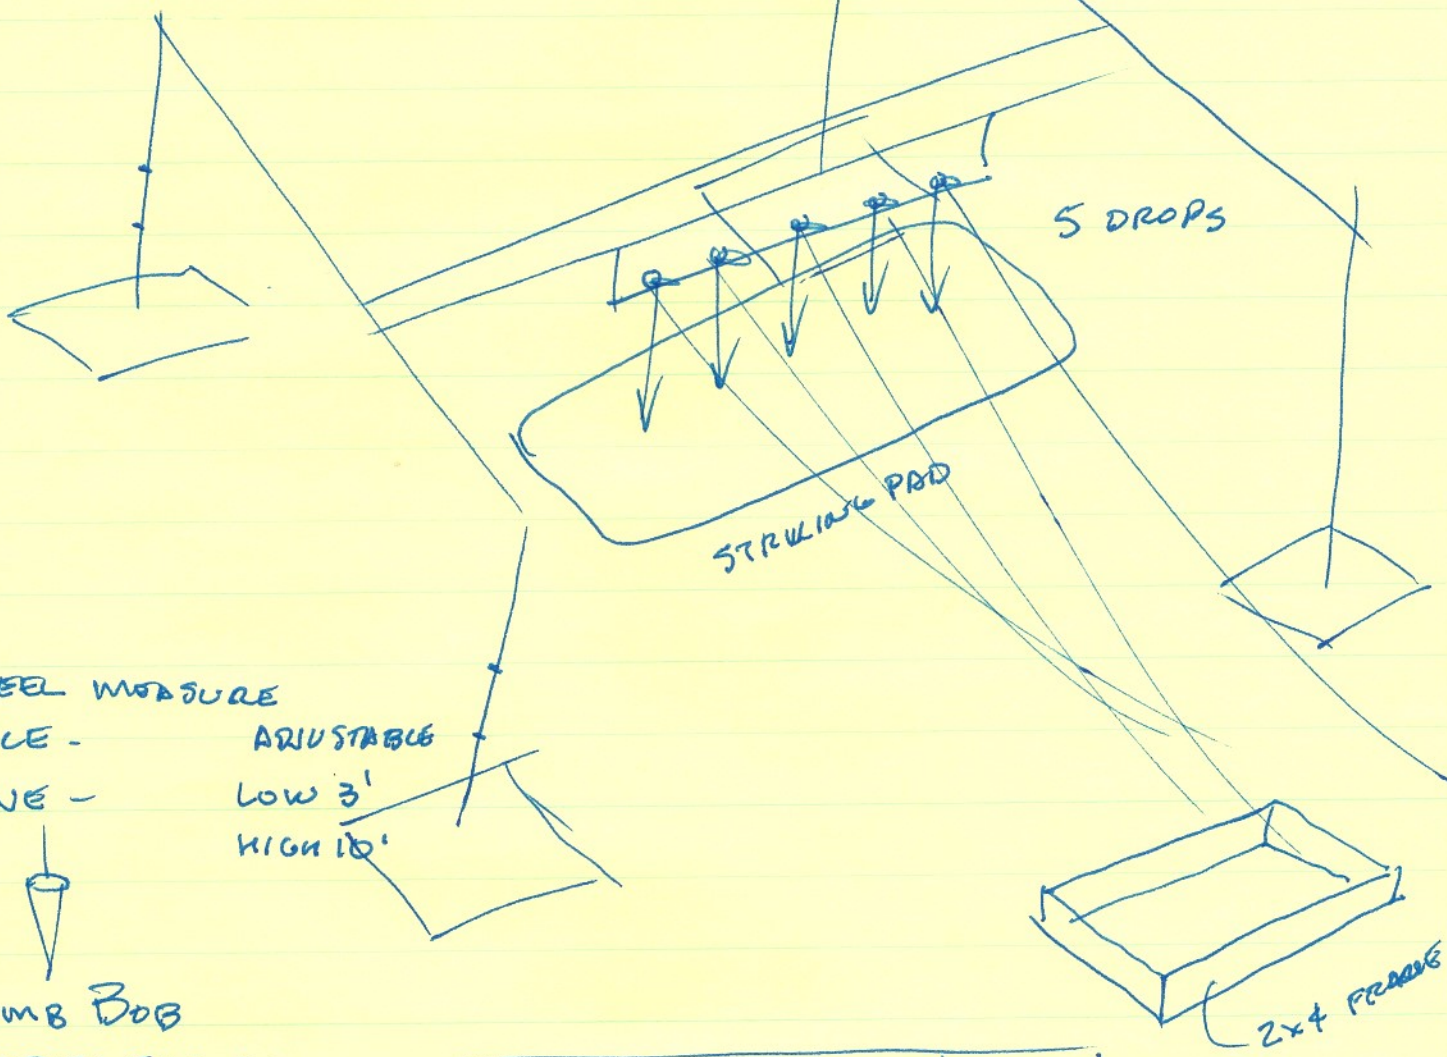 5 DROPS
STRIKING PAD
EEL MEASURE
LE - ADJUSTABLE
NE - LOW 3'
HIGH 10'
MB BOB
2x4 FRAME